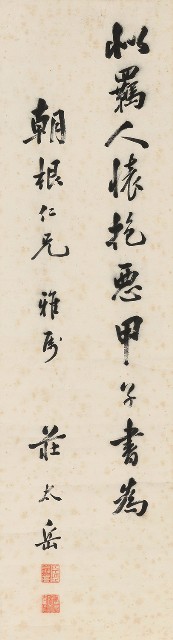 似羈人懷抱惡甲子書為
朝根仁兄 雅属 莊太岳